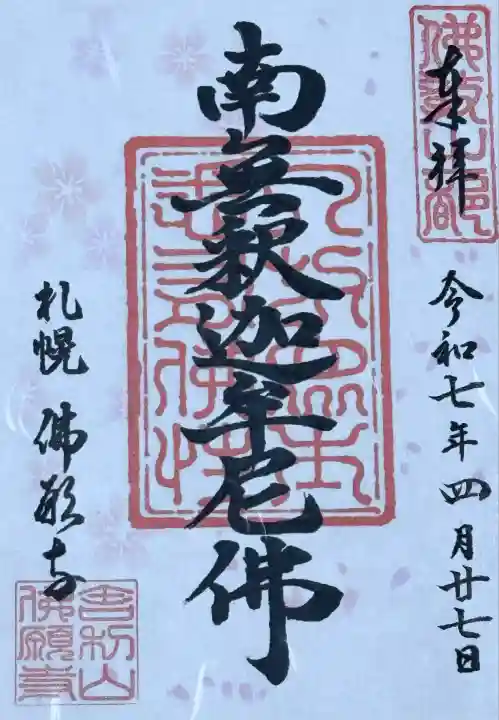 奉拝
令和七年四月廿七日
南無釈迦牟尼佛
札幌 佛願寺
舎利山
佛願寺